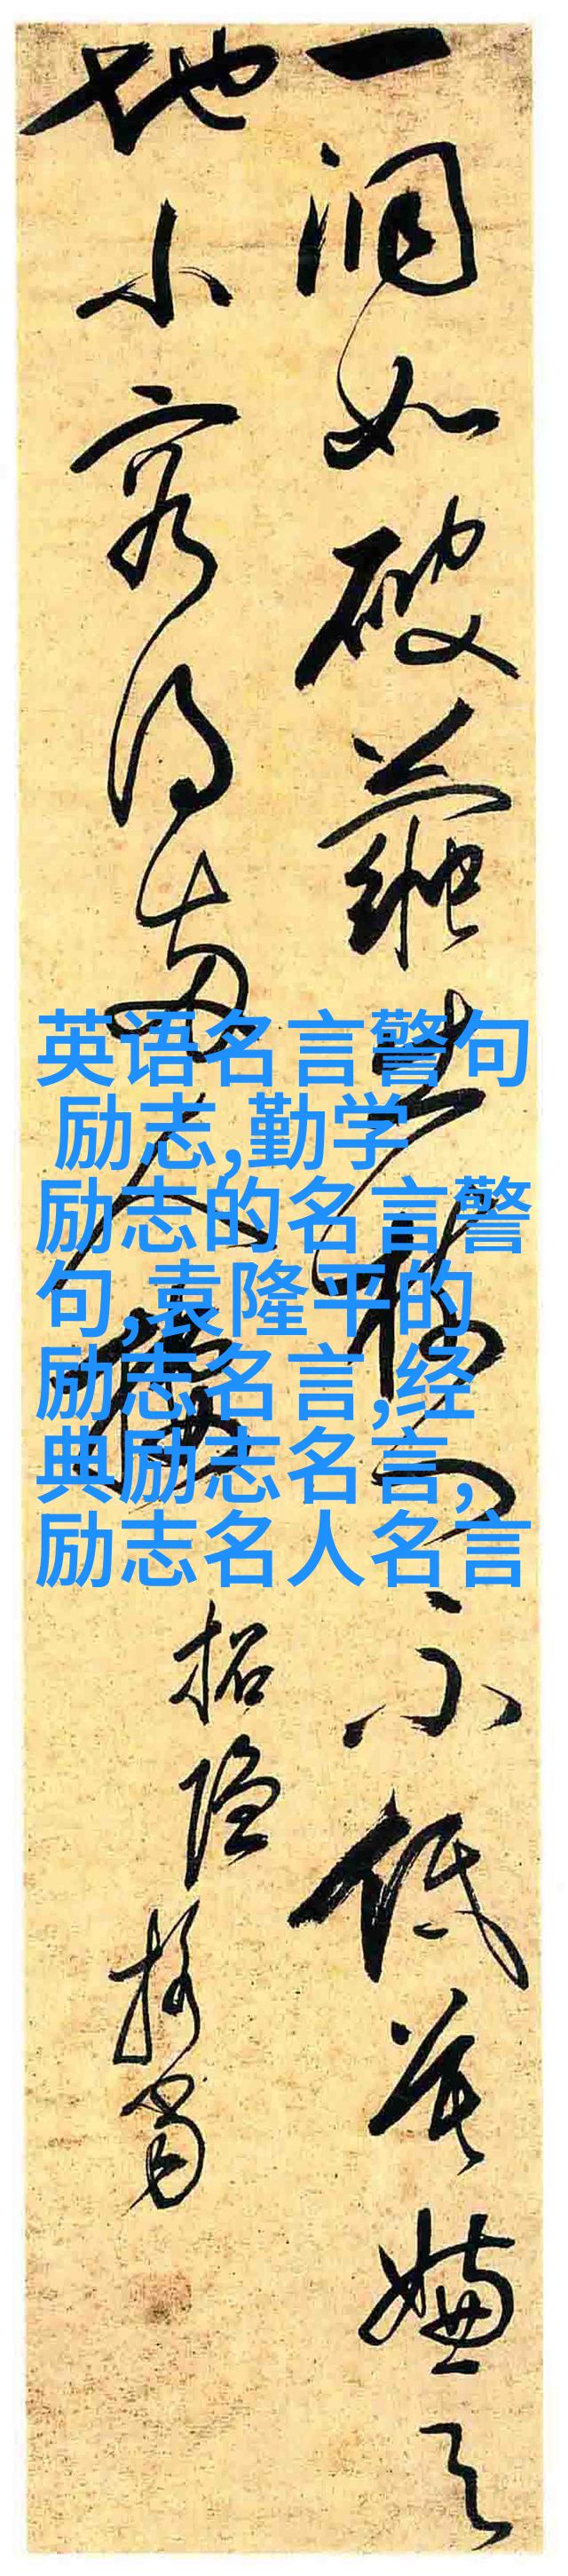 一洞如破不低莫嫌天
地小容得两人
招隐
英语名言警句
励志,勤学
励志的名言警
句,袁隆平的
励志名言,经
典励志名言,
励志名人名言